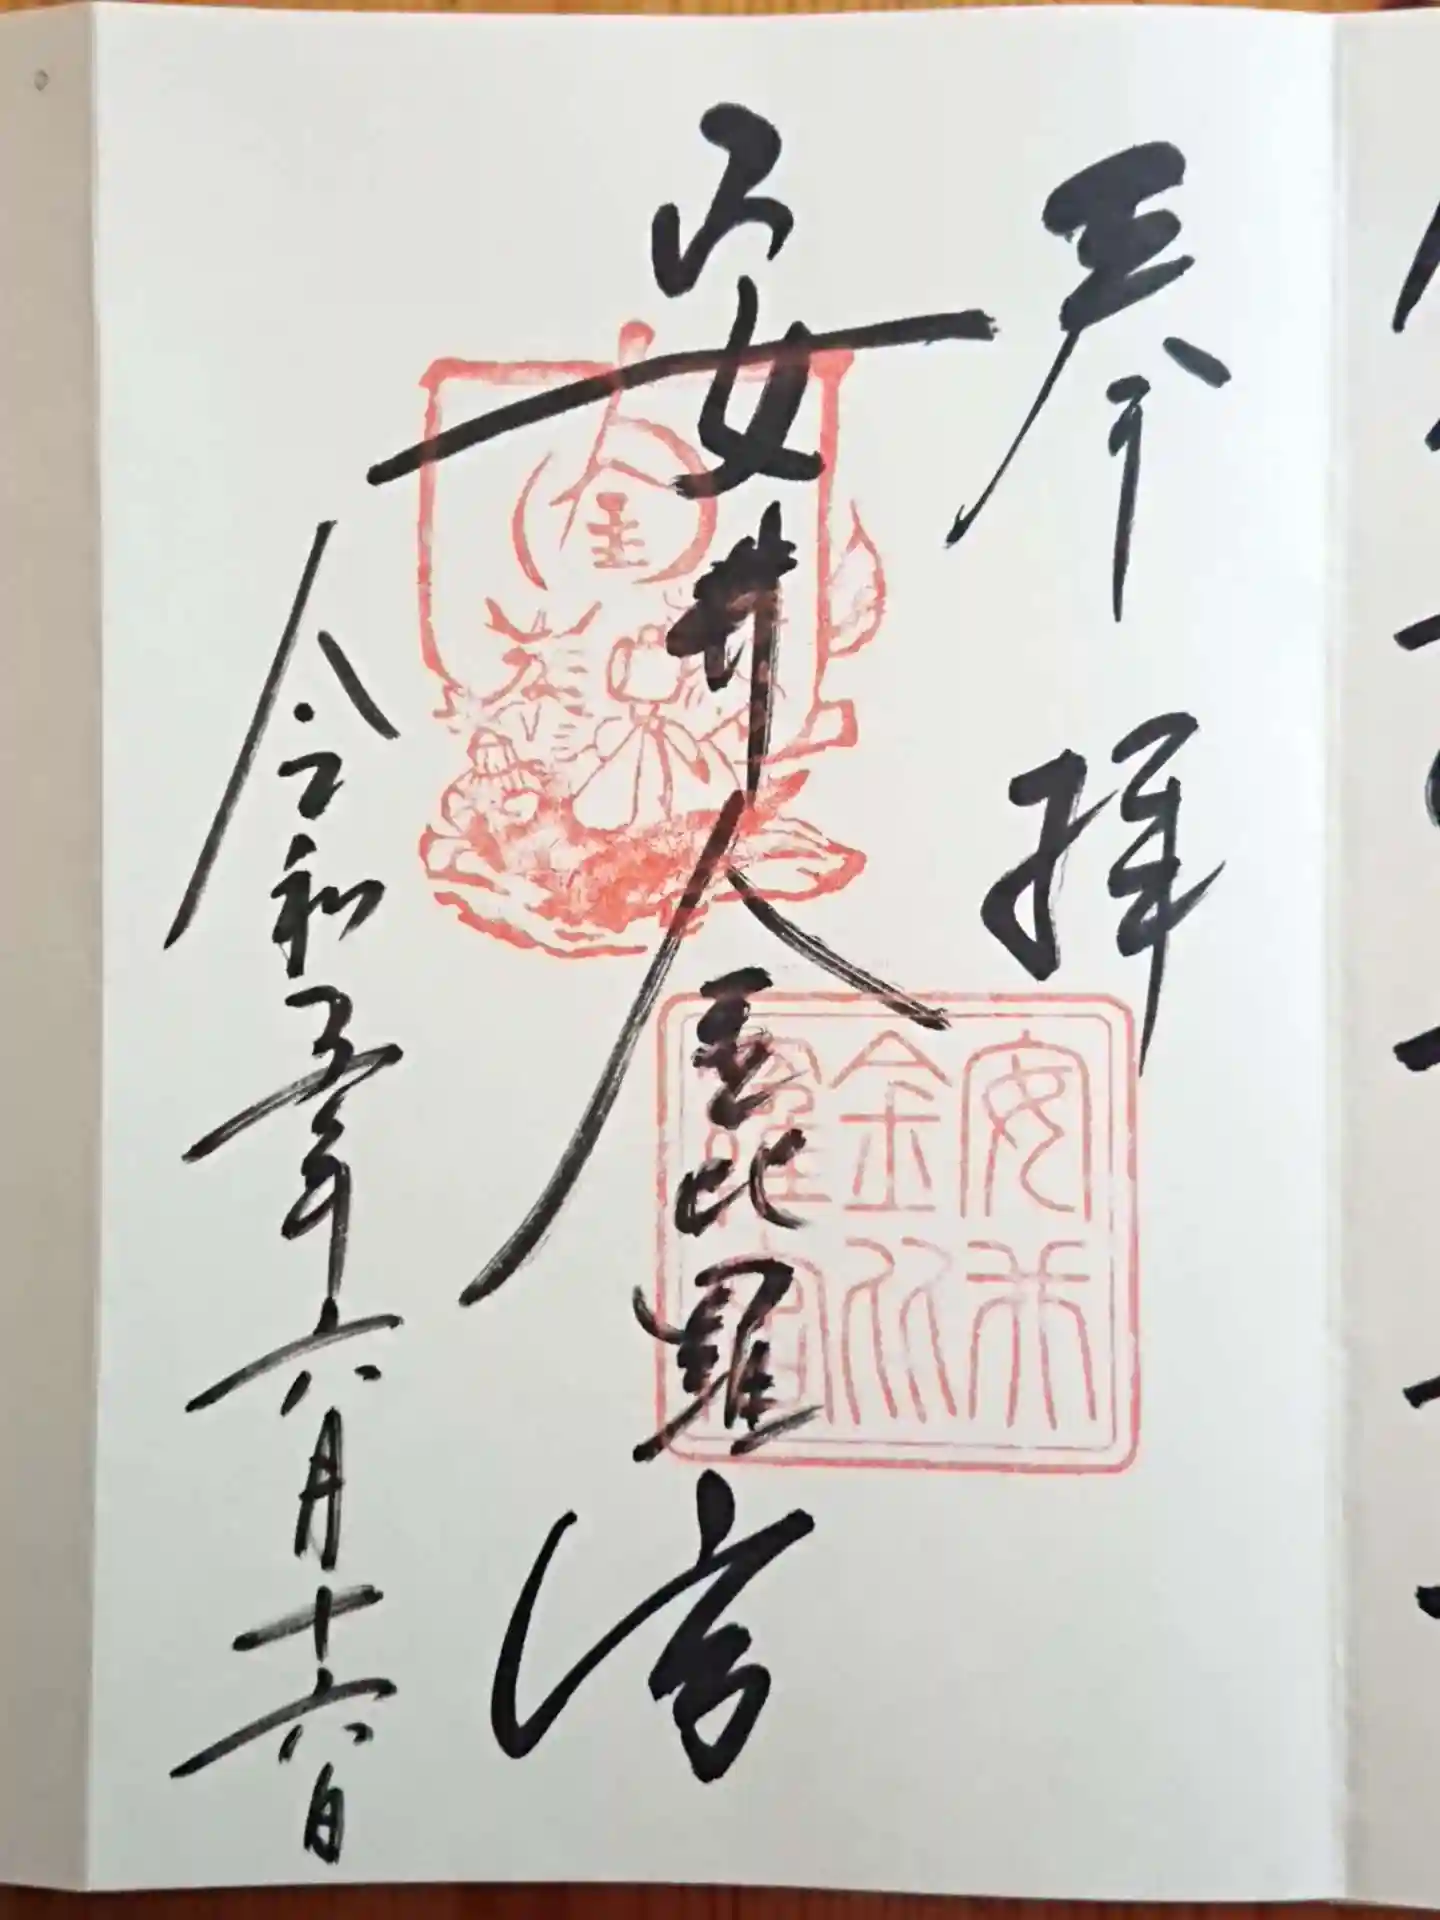 奉拝
安井金毘羅宮
令和五年六月十六日
金
安井
金比
羅宮